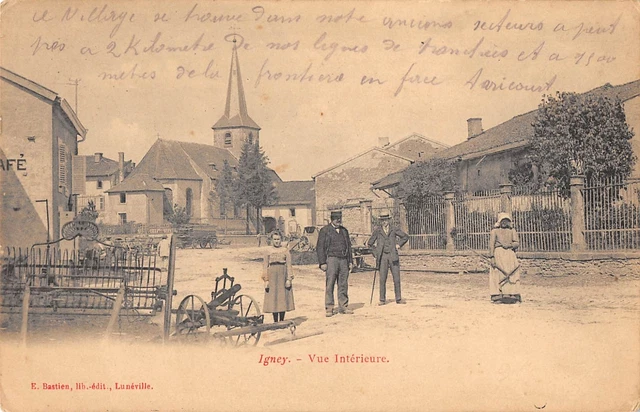 ce Village se trouve dans notre ancien secteurs a peut
près a 2 Kilometre de nos lignes de tranchées et a 1500
metres de la frontière en face Avricourt
AFÉ
Igney. - Vue Intérieure.
E. Bastien, lib.-édit., Lunéville.